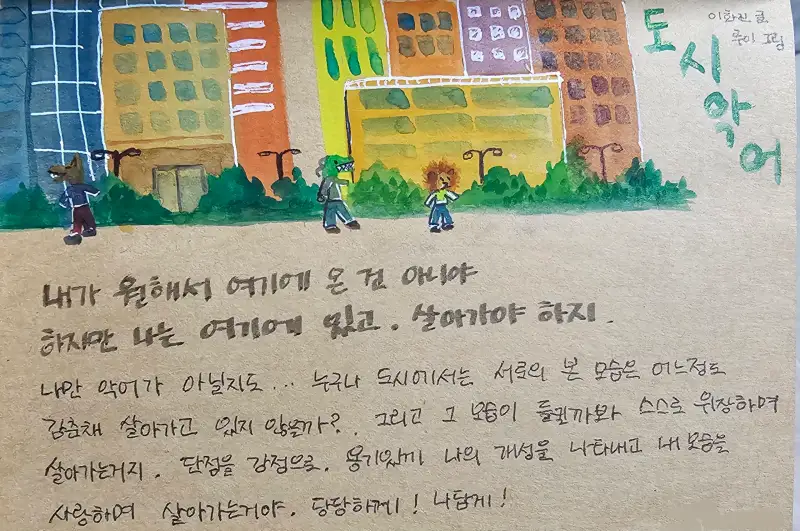 도시악어
이화진 글
루리 그림
내가 원해서 여기에 온 건 아니야
하지만 나는 여기에 있고. 살아가야 하지.
나만 악어가 아닐지도... 누구나 도시에서는 서로의 본 모습은 어느정도
감춘채 살아가고 있지 않은가?. 그리고 그 모습이 들킬까봐 스스로 위장하며
살아가는거지. 단점을 강점으로. 용기있게 나의 개성을 나타내고 내 모습을
사랑하며 살아가는거야. 당당하게! 나답게!